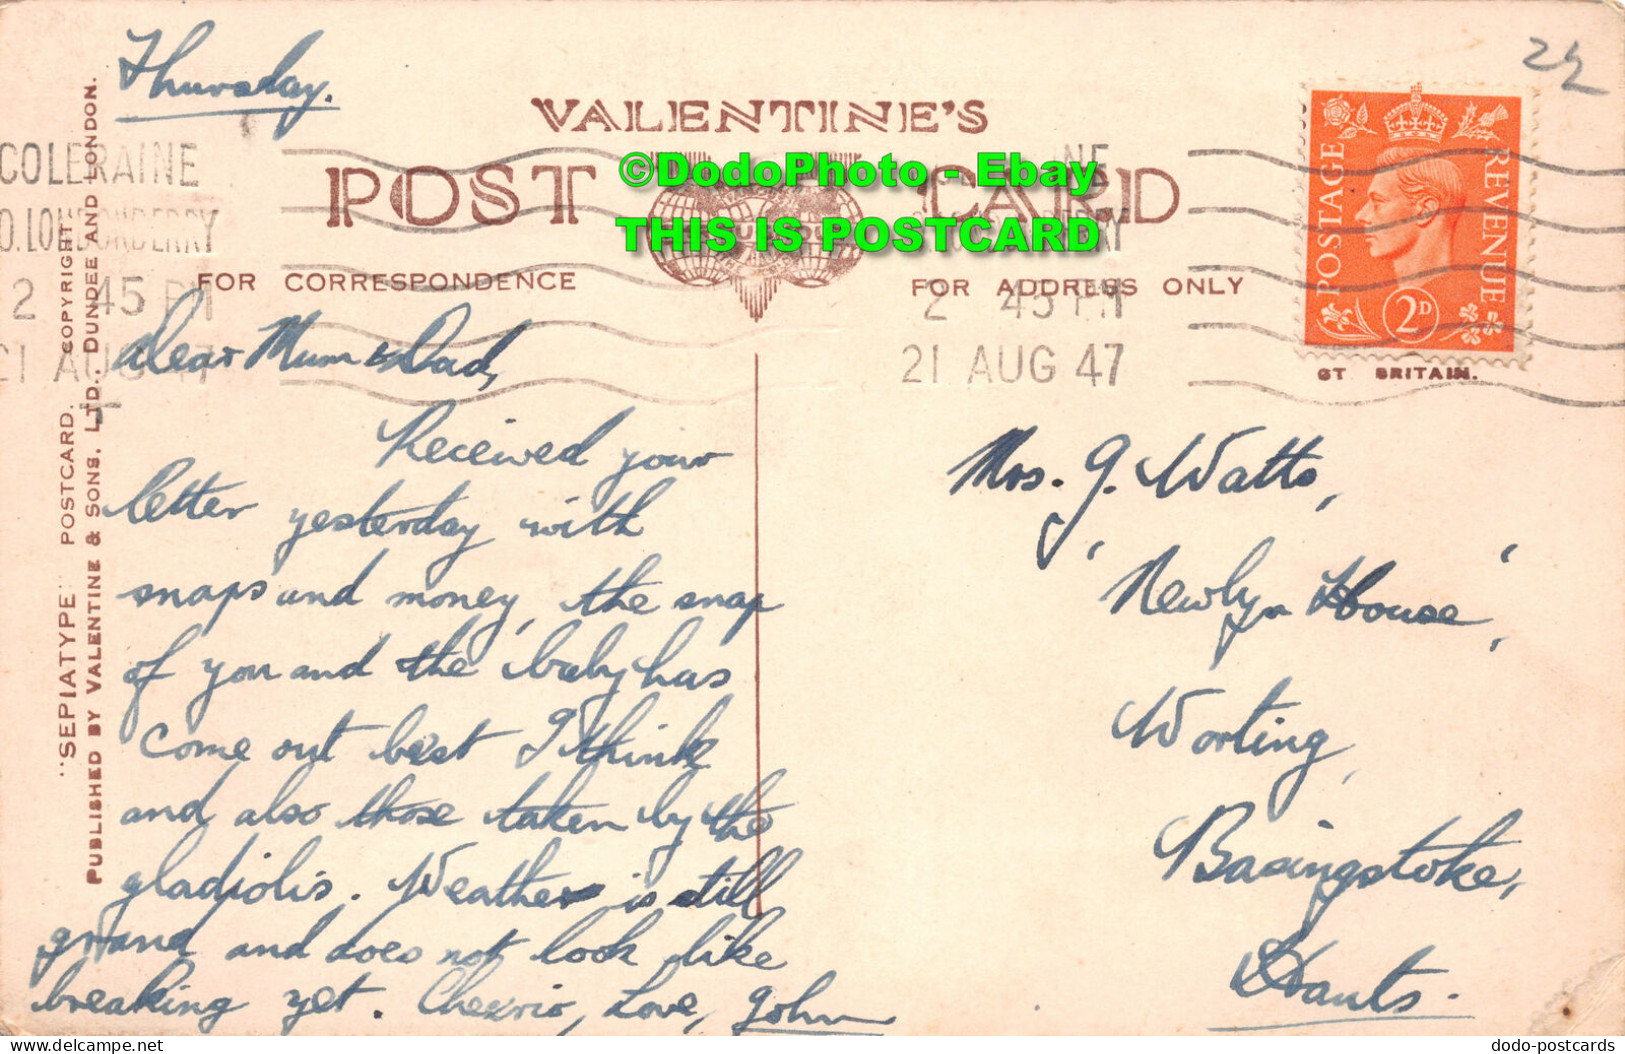 Thursday.
22
VALENTINE'S
POST CARD
©DodoPhoto - Ebay
THIS IS POSTCARD
COLERAINE
O. LONDONDERRY
2 45 PM
21 AUG 47
NE
RRY
2 45 PM
21 AUG 47
POSTAGE
REVENUE
2D
FOR CORRESPONDENCE
FOR ADDRESS ONLY
GT BRITAIN.
"SEPIATYPE" POSTCARD. COPYRIGHT.
PUBLISHED BY VALENTINE & SONS, LTD., DUNDEE AND LONDON.
Dear Mum & Dad,
Received your
letter yesterday with
snaps and money, the snap
of you and the baby has
come out best I think
and also those taken by the
gladiolis. Weather is still
grand and does not look like
breaking yet. Cheerio, Love, John
Mrs. G. Watts,
'Newlyn House',
Worting,
Basingstoke,
Hants.
dodo-postcards
delcampe.net